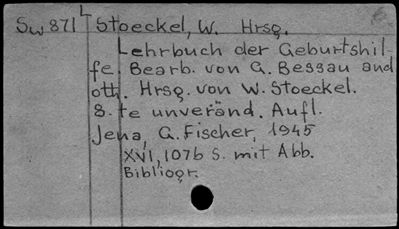 Sw 871 L Stoeckel, W. Hrsg.
Lehrbuch der Geburtshil-
fe. Bearb. von G. Bessau and
oth. Hrsg. von W. Stoeckel.
8.te unveränd. Aufl.
Jena, G. Fischer, 1945
XVI, 1076 S. mit Abb.
Bibliogr.